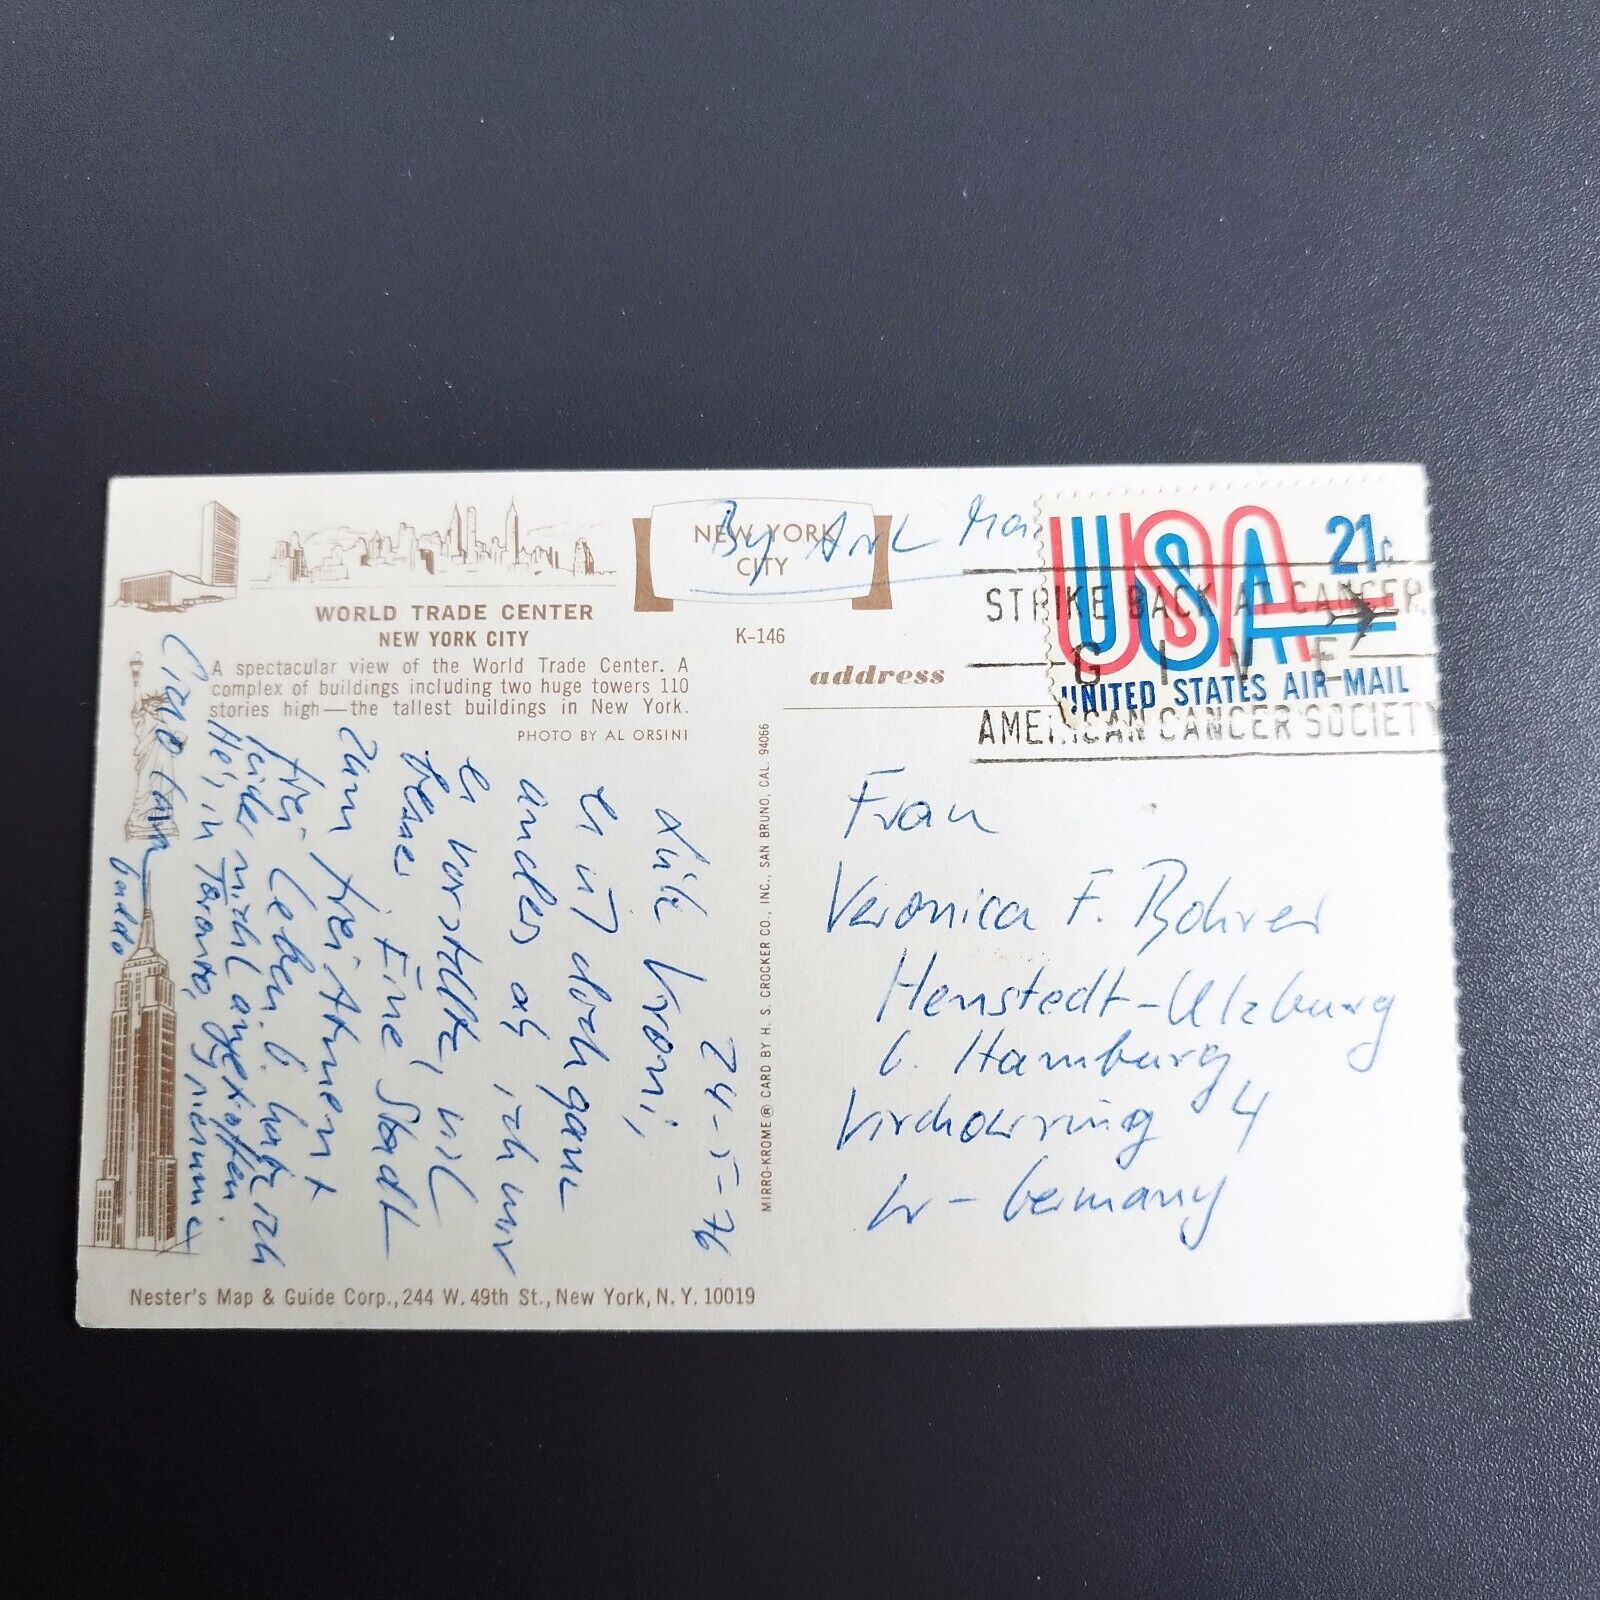 NEW YORK
CITY
By Air Mail
WORLD TRADE CENTER
NEW YORK CITY
K-146
A spectacular view of the World Trade Center. A
complex of buildings including two huge towers 110
stories high—the tallest buildings in New York.
PHOTO BY AL ORSINI
address
USA 21c
UNITED STATES AIR MAIL
STRIKE BACK AT CANCER
GIVE
AMERICAN CANCER SOCIETY
24-5-76
Vroni,
es ist doch ganz
anders als ich mir
es vorstellte, viel
besser. Eine Stadt
zum frei Atmen +
frei Leben.
leider nicht angetroffen
in Toronto,
Ciao
Guido
Frau
Veronica F. Bohrer
Henstedt-Ulzburg
b. Hamburg
4
W-Germany
MIRRO-KROME® CARD BY H. S. CROCKER CO., INC., SAN BRUNO, CAL. 94066
Nester's Map & Guide Corp., 244 W. 49th St., New York, N. Y. 10019